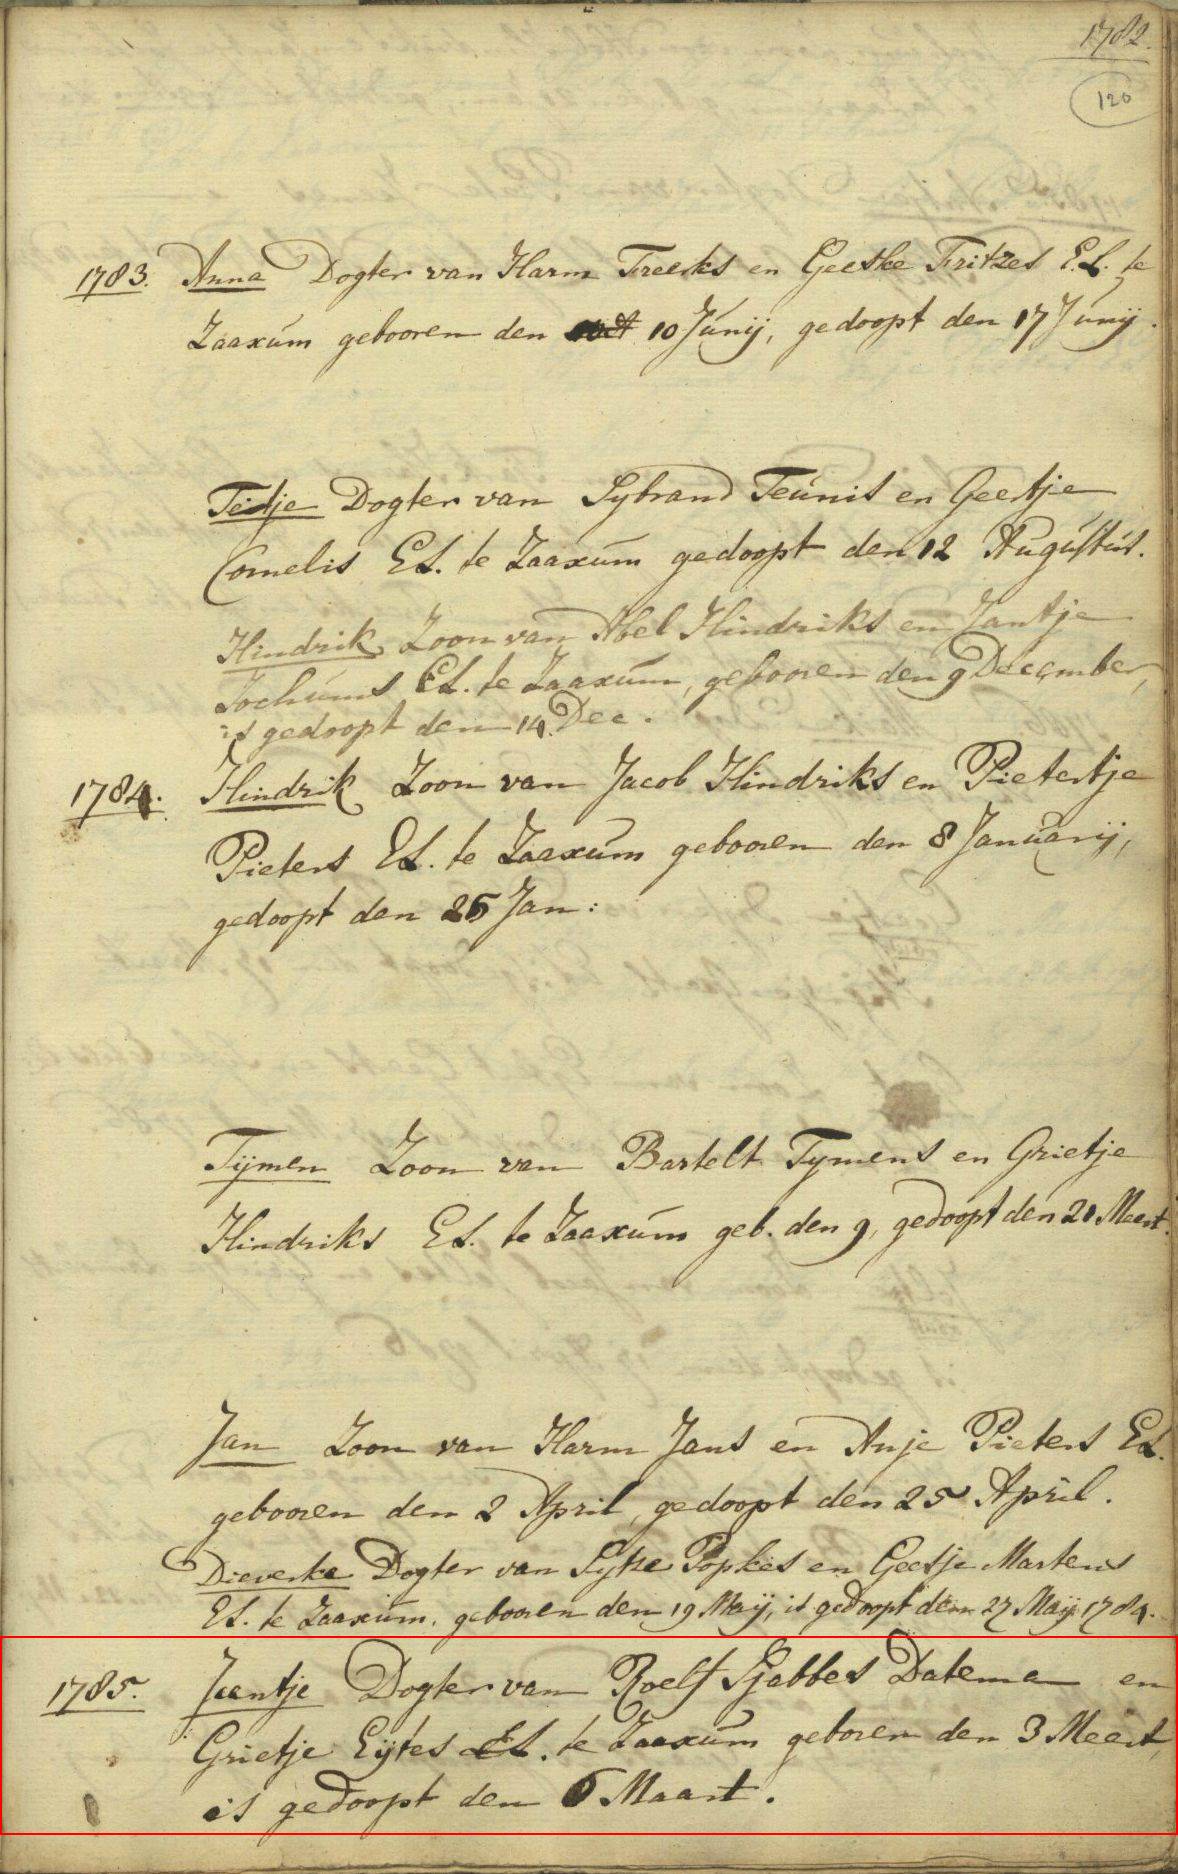 1782.
120
1783. Anna Dogter van Harm Freerks en Geeske Fritzes E.L. te
Zaaxum gebooren den 10 Junij, gedoopt den 17 Junij.
Tietje Dogter van Sybrand Teunis en Geertje
Cornelis EL. te Zaaxum gedoopt den 12 Augustus.
Hindrik Zoon van Abel Hindriks en Jantje
Jochums EL. te Zaaxum, gebooren den 9 December,
is gedoopt den 14. Dec.
1784. Hindrik Zoon van Jacob Hindriks en Pietertje
Pieters EL. te Zaaxum gebooren den 8 Januarij,
gedoopt den 25 Jan:
Tijmen Zoon van Bartelt Tymens en Grietje
Hindriks EL. te Zaaxum geb. den 9, gedoopt den 21 Meert.
Jan Zoon van Harm Jans en Anje Pieters EL.
gebooren den 2 April, gedoopt den 25 April.
Dieverke Dogter van Sytze Popkes en Geertje Martens
EL. te Zaaxum. gebooren den 19 Maij, is gedoopt den 27 Maij 1784.
1785. Jantje Dogter van Roelf Sjabbes Datema en
Grietje Eijtes EL. te Zaaxum geboren den 3 Meert,
is gedoopt den 6 Maart.